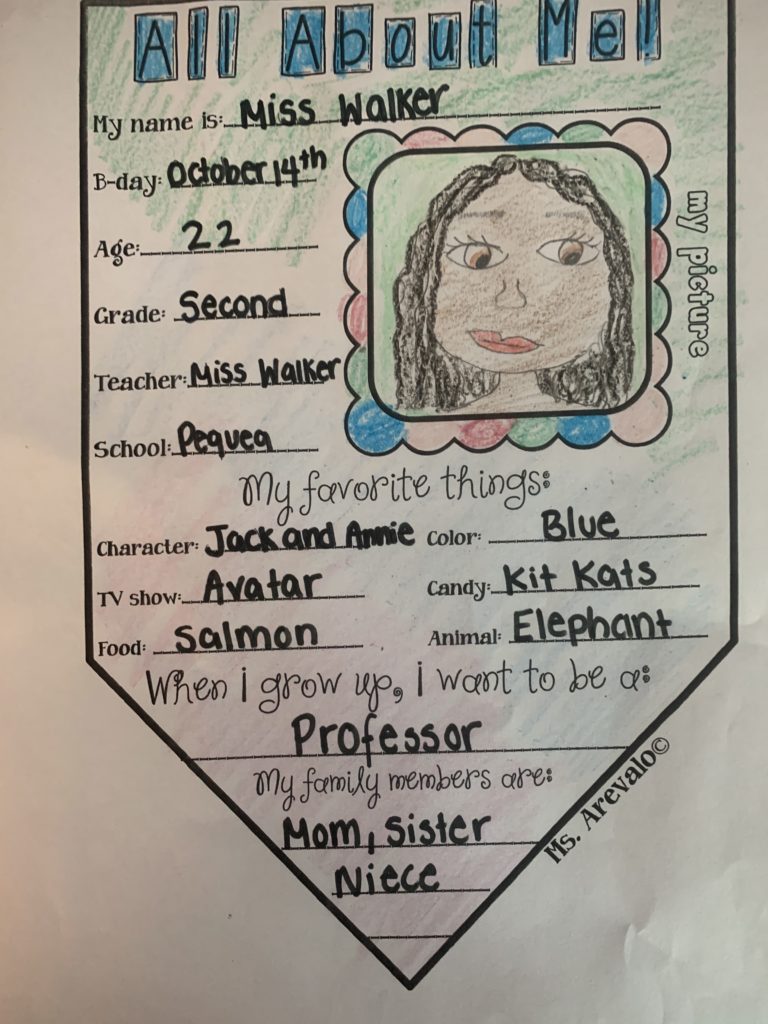 All About Me!
My name is: Miss Walker
B-day: October 14th
Age: 22
Grade: Second
Teacher: Miss Walker
School: Pequea
my picture
My favorite things:
Character: Jack and Annie Color: Blue
TV show: Avatar Candy: Kit Kats
Food: Salmon Animal: Elephant
When i grow up, i want to be a:
Professor
My family members are:
Mom, Sister
Niece
Ms. Arevalo©